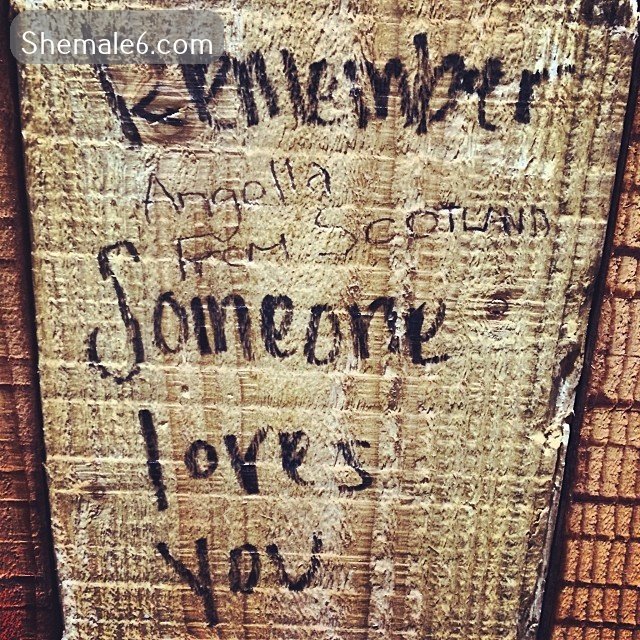 Shemale6.com
Remember
Angella
From SCOTLAND
Someone
loves
you